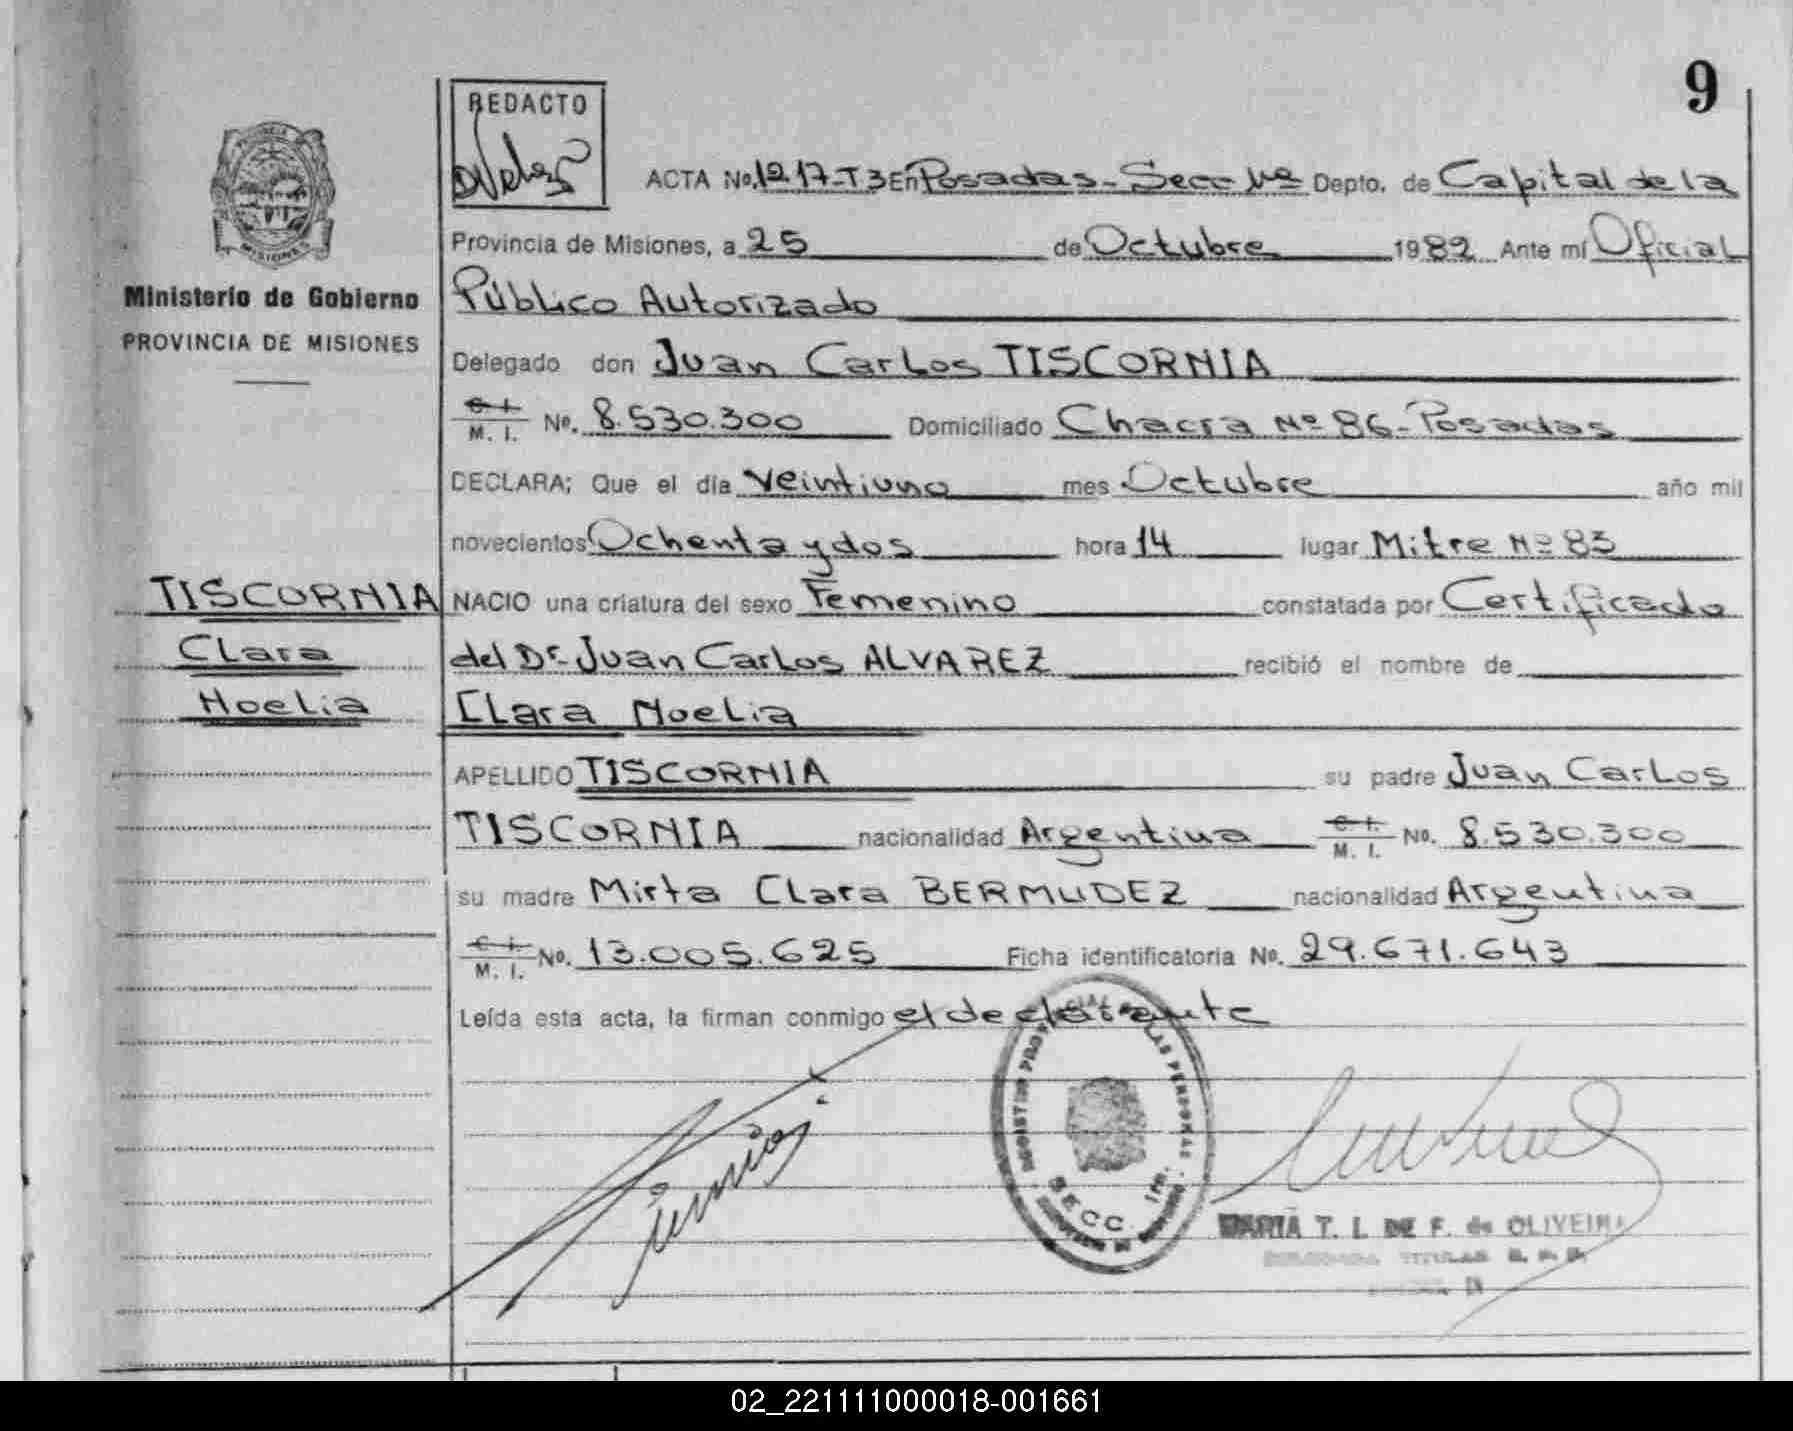 9
REDACTO
ACTA No. 1217-T3 En Posadas - Secc 1ra Depto. de Capital de la
Provincia de Misiones, a 25 de Octubre 1982 Ante mí Oficial
Público Autorizado
Delegado don Juan Carlos TISCORNIA
C. I. M. I. No. 8.530.300 Domiciliado Chacra Nº 86 - Posadas
DECLARA; Que el día veintiuno mes Octubre año mil
novecientos Ochenta y dos hora 14 lugar Mitre Nº 83
NACIO una criatura del sexo Femenino constatada por Certificado
del Dr. Juan Carlos ALVAREZ recibió el nombre de
Clara Noelia
APELLIDO TISCORNIA su padre Juan Carlos
TISCORNIA nacionalidad Argentina C. I. M. I. No. 8.530.300
su madre Mirta Clara BERMUDEZ nacionalidad Argentina
C. I. M. I. No. 13.005.625 Ficha identificatoria No. 29.671.643
Leída esta acta, la firman conmigo el declarante
MISIONES
Ministerio de Gobierno
PROVINCIA DE MISIONES
TISCORNIA
Clara
Noelia
SECC. 1ra.
MARIA T. I. DE F. de OLIVEIRA
02_221111000018-001661